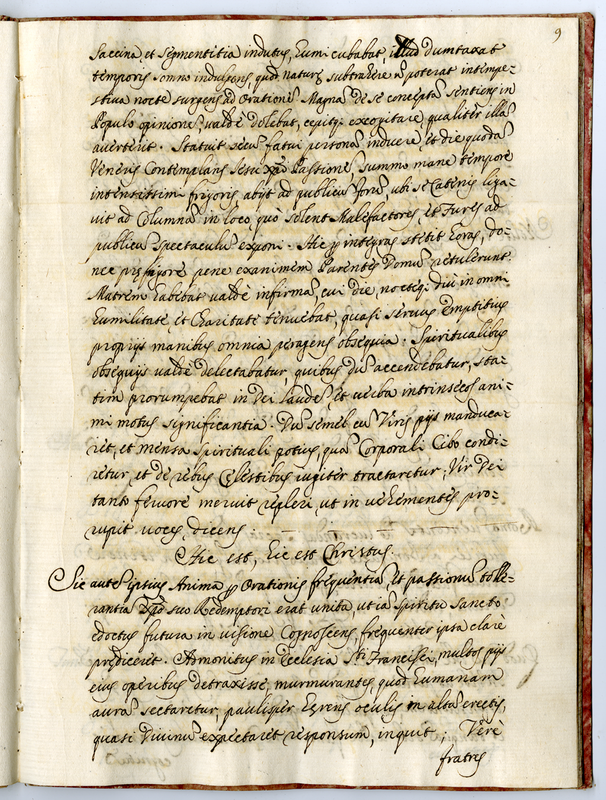 9
Saccina et sementitia indutus, humi cubabat, illud dumtaxat
temporis somno indulgens, quod naturę subtrahere ñ poterat intempe-
stiva nocte surgens ad Orationē. Magnā de se conceptā sentiens in
Populo opinionē, valdè dolebat, cępitq; excogitare, qualiter illā
averteret. Statuit seu fatui personā induere, et die quodā
Veneris Contemplans Iesu Xpī Passionē, summo mane tempore
intensissimi frigoris abijt ad publicū forū, ubi se Catenis liga-
vit ad Columnā in loco, quo solent Malefactores, et Fures ad
publicū spectaculū exponi. Hic p integras stetit horas, do-
nec prę frigore pene exanimem Parentes Domū retulerunt.
Matrem habebat valdè infirmā, cui die, noctuq; diù in omni
humilitate, et Charitate serviebat, quasi servus emptitius
proprijs manibus omnia peragens obsequia. Spiritualibus
obsequijs valdè delectabatur, quibus dū accendebatur, sta-
tim prorumpebat in Dei laudes, et verba intrinsecos ani-
mi motus significantia. Dū semel cū Viris pijs manduca-
ret, et mensa Spirituali potius, quā Corporali Cibo condi-
retur, et de rebus Cęlestibus iugiter tractaretur, Vir Dei
tanto fervore meruit repleri, ut in vehementes pro-
rupit voces, dicens:
Hic est, hic est Christus.
Sic autē ipsius Anima p Orationis frequentiā, et passionū tolle-
rantiā suo Redemptori erat unita, ut iā Spiritu Sancto
edoctus futura in visione Cognoscens, frequenter ipsa clare
prediceret. Admonitus in Ecclesia Sti Francisci, multos pijs
eius operibus detraxisse, murmurantes, quod humanam
aurā sectaretur, paulisper hęrens oculis in altū erectis,
quasi Divinū expectaret responsum, inquit; Verè
fratres